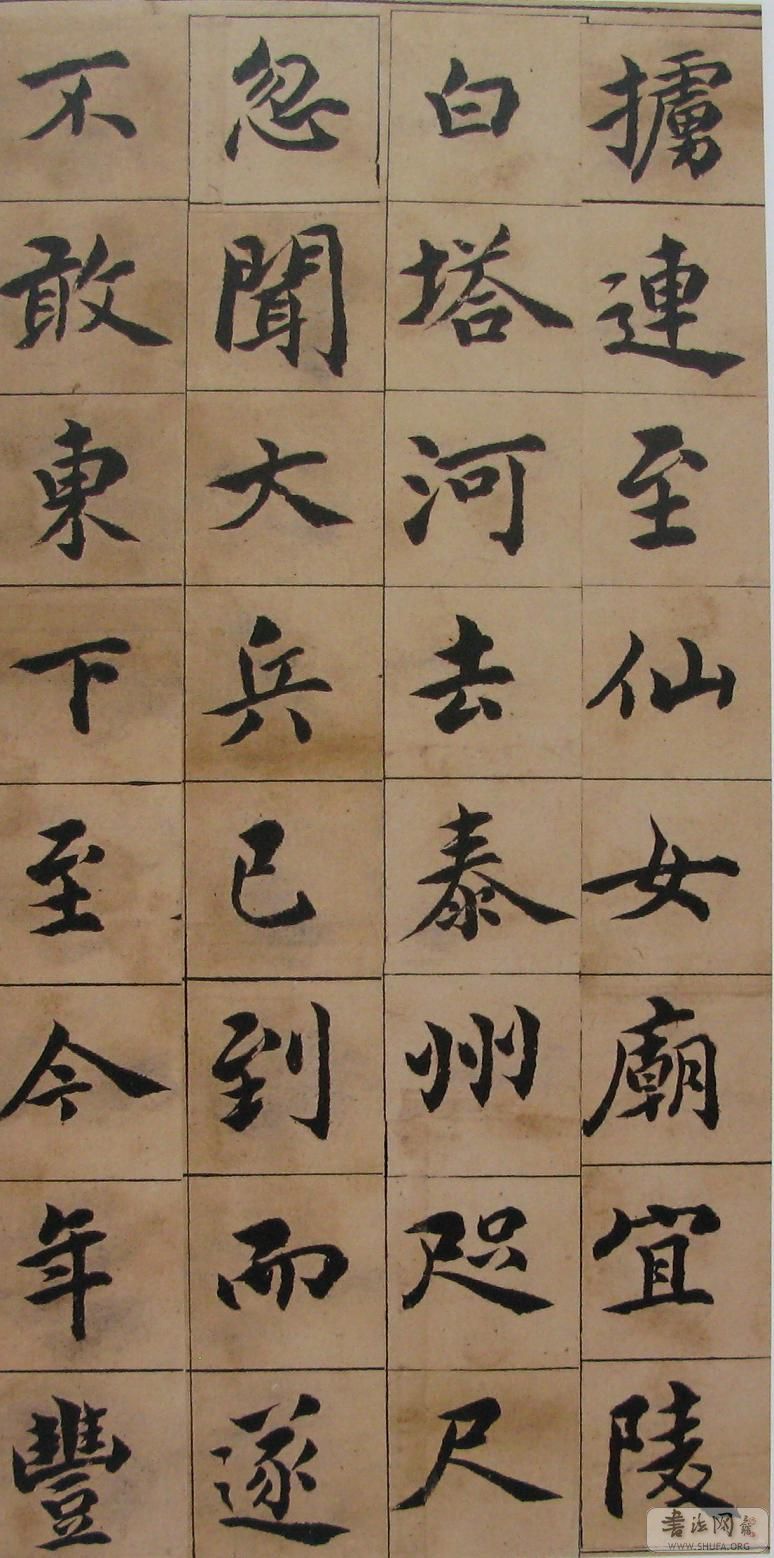 擄連至仙女廟宜陵
白塔河去泰州咫尺
忽聞大兵已到而遂
不敢東下至今年豐
書法网
WWW.SHUFA.ORG